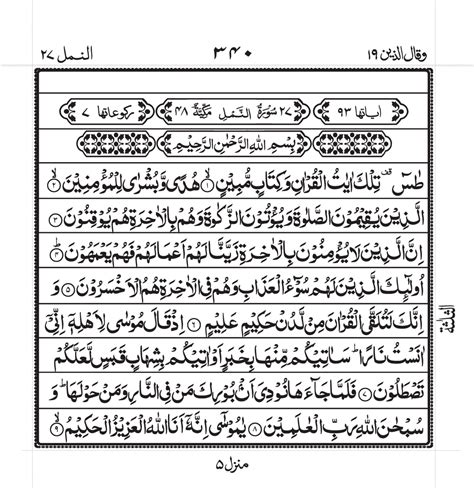 وقال الذين ١٩ ٣٤٠ النمل ٢٧
اٰیاتها ٩٣ ٢٧ سُوْرَةُ النَّمْلِ مَكِّيَّةٌ ٤٨ رکوعاتها ٧
بِسْمِ اللّٰهِ الرَّحْمٰنِ الرَّحِيْمِ
طٰسٓ ۚ تِلْكَ اٰيٰتُ الْقُرْاٰنِ وَكِتَابٍ مُّبِيْنٍ ۙ﴿١﴾ هُدًى وَّبُشْرٰى لِلْمُؤْمِنِيْنَ ۙ﴿٢﴾
الَّذِيْنَ يُقِيْمُوْنَ الصَّلٰوةَ وَيُؤْتُوْنَ الزَّكٰوةَ وَهُمْ بِالْاٰخِرَةِ هُمْ يُوْقِنُوْنَ ﴿٣﴾
اِنَّ الَّذِيْنَ لَا يُؤْمِنُوْنَ بِالْاٰخِرَةِ زَيَّنَّا لَهُمْ اَعْمَالَهُمْ فَهُمْ يَعْمَهُوْنَ ؕ﴿٤﴾
اُولٰٓئِكَ الَّذِيْنَ لَهُمْ سُوْٓءُ الْعَذَابِ وَهُمْ فِى الْاٰخِرَةِ هُمُ الْاَخْسَرُوْنَ ﴿٥﴾
وَاِنَّكَ لَتُلَقَّى الْقُرْاٰنَ مِنْ لَّدُنْ حَكِيْمٍ عَلِيْمٍ ﴿٦﴾ اِذْ قَالَ مُوْسٰى لِاَهْلِهٖۤ اِنِّىْۤ
اٰنَسْتُ نَارًا ؕ سَاٰتِيْكُمْ مِّنْهَا بِخَبَرٍ اَوْ اٰتِيْكُمْ بِشِهَابٍ قَبَسٍ لَّعَلَّكُمْ
تَصْطَلُوْنَ ﴿٧﴾ فَلَمَّا جَآءَهَا نُوْدِىَ اَنْۢ بُوْرِكَ مَنْ فِى النَّارِ وَمَنْ حَوْلَهَا ؕ وَ
سُبْحٰنَ اللّٰهِ رَبِّ الْعٰلَمِيْنَ ﴿٨﴾ يٰمُوْسٰٓى اِنَّهٗۤ اَنَا اللّٰهُ الْعَزِيْزُ الْحَكِيْمُ ۙ﴿٩﴾
الثلثة
منزل ٥